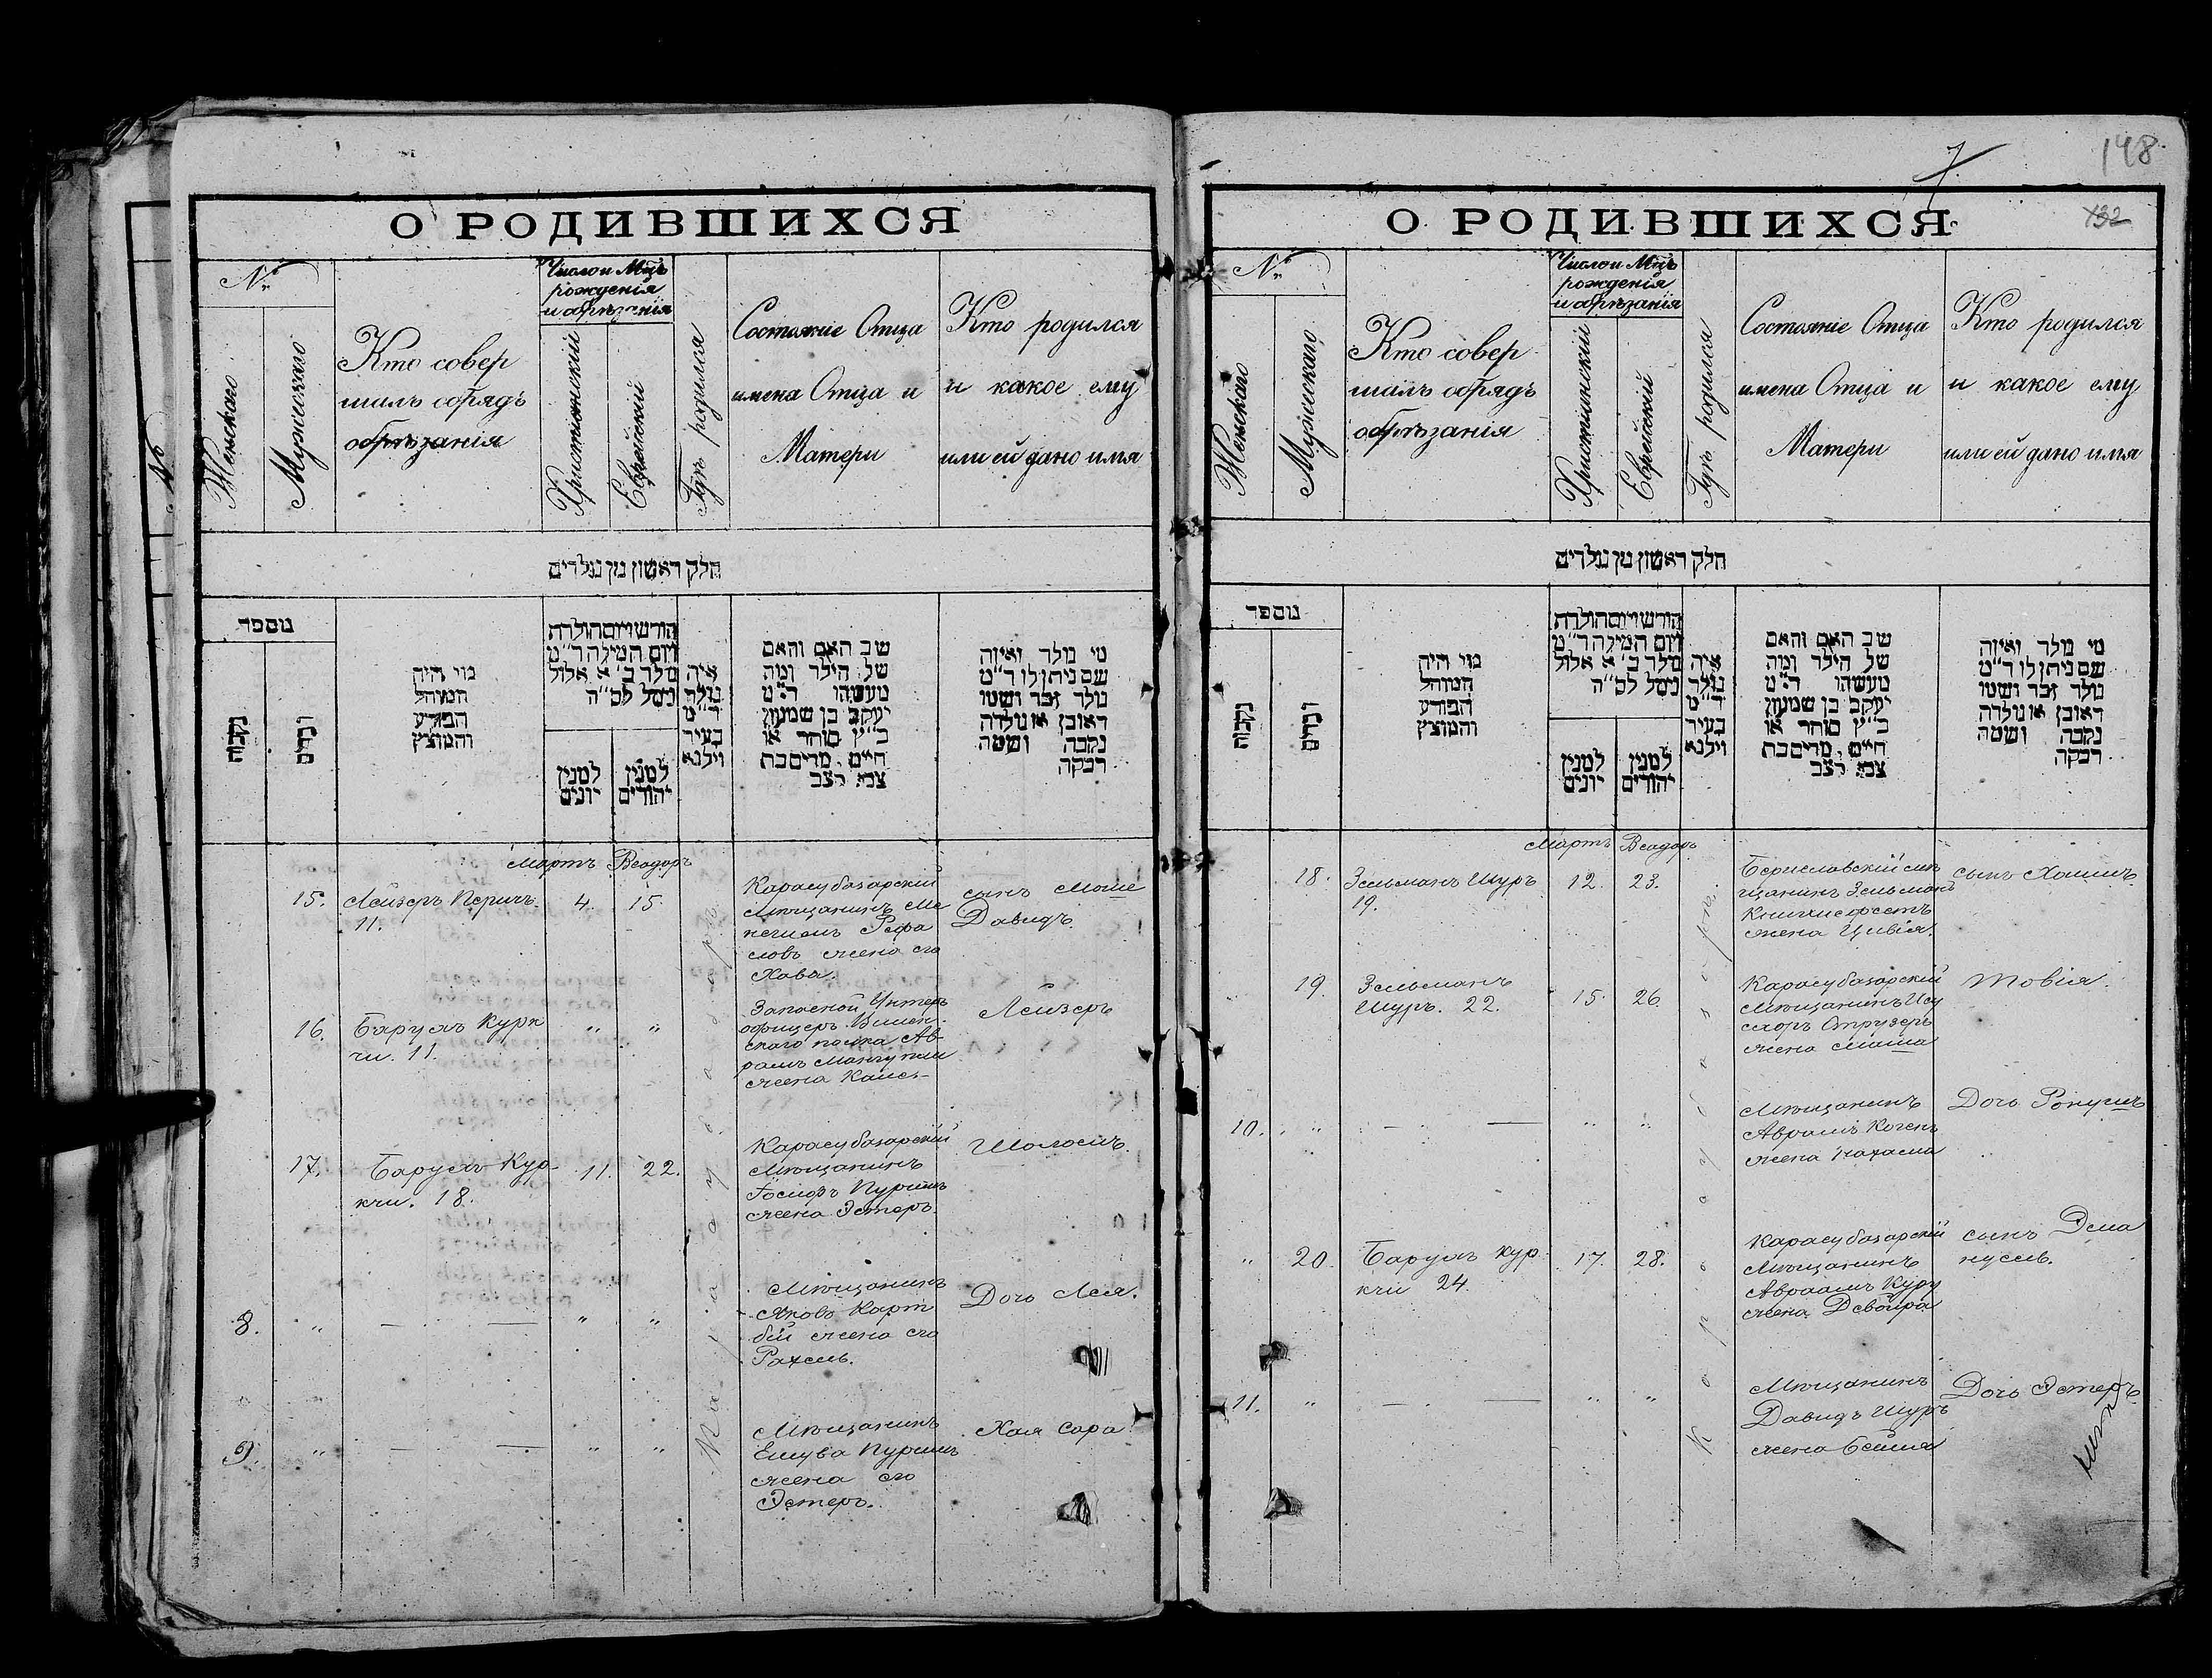 О РОДИВШИХСЯ
№
Женскаго
Мужескаго
Кто совер
шалъ обрядъ
обрѣзанія
Число и Мцъ
рожденія
и обрѣзанія
Христіанскій
Еврейскій
Гдѣ родился
Состояніе Отца
имена Отца и
Матери
Кто родился
и какое ему
или ей дано имя
חלק ראשון מן נולדים
מספר
נקבות
זכרים
מי היה
המוהל
הפורע
והמוצץ
חודש ויום הולדת
ויום המילה ד״מ
נולד ב׳ א אלול
נימל לס״ה
למנין
יונים
למנין
יהודים
איה
נולד
ד״מ
בעיר
וילנא
שב האם והאם
של הילד ומה
מעשהו ד״מ
יעקב בן שמעון
כ״ץ סוחר או
חיים, מרים בת
צבי
מי נולד ואיזה
שם ניתן לו ד״מ
נולד זכר ושמו
ראובן או נולדה
נקבה ושמה
רבקה
Мартъ Веадоръ
15. Лейзеръ Перичъ. 4. 15.
11.
Карасубазарскій
Мѣщанинъ Ме
нехемъ Рефа
ловъ жена его
Хава.
сынъ Моше
Давидъ.
16. Барухъ Курк
чи. 11. " "
Запасной Унтеръ
офицеръ Вилен.
скаго полка Ав-
рамъ Мангупли
жена
Лейзеръ
17. Барухъ Кур-
кчи. 18. 11. 22.
Карасубазарскій
Мѣщанинъ
Іосифъ Пуримъ
жена Эстеръ.
Шоломъ.
8. " — — " "
Мѣщанинъ
Яковъ Карт
бій жена его
Рахель.
Дочь Лея.
9. " — — " "
Мѣщанинъ
Ешува Пуримъ
жена его
Эстеръ.
Хая Сара
Карасубазаръ
7
148
132
О РОДИВШИХСЯ
№
Женскаго
Мужескаго
Кто совер
шалъ обрядъ
обрѣзанія
Число и Мцъ
рожденія
и обрѣзанія
Христіанскій
Еврейскій
Гдѣ родился
Состояніе Отца
имена Отца и
Матери
Кто родился
и какое ему
или ей дано имя
חלק ראשון מן נולדים
מספר
נקבות
זכרים
מי היה
המוהל
הפורע
והמוצץ
חודש ויום הולדת
ויום המילה ד״מ
נולד ב׳ א אלול
נימל לס״ה
למנין
יונים
למנין
יהודים
איה
נולד
ד״מ
בעיר
וילנא
שב האם והאם
של הילד ומה
מעשהו ד״מ
יעקב בן שמעון
כ״ץ סוחר או
חיים, מרים בת
צבי
מי נולד ואיזה
שם ניתן לו ד״מ
נולד זכר ושמו
ראובן או נולדה
נקבה ושמה
רבקה
Мартъ Веадоръ
18. Зельманъ Шуръ 12. 23.
19.
Бериславскій мѣ
щанинъ Зельманъ
жена Цивія.
сынъ Хаимъ.
19. Зельманъ
Шуръ. 22. 15. 26.
Карасубазарскій
МѣщанинъИсу
схоръ
жена Маша
Товія.
10. " — — " "
Мѣщанинъ
Аврамъ Когенъ
жена Нахама
Дочь
" 20. Барухъ Кур
кчи 24. 17. 28.
Карасубазарскій
Мѣщанинъ
Авраамъ Куру
жена Девойра
сынъ Эма
нуель.
11. " — — " "
Мѣщанинъ
Давидъ Шуръ
жена
Дочь Эстеръ
Карасубазаръ